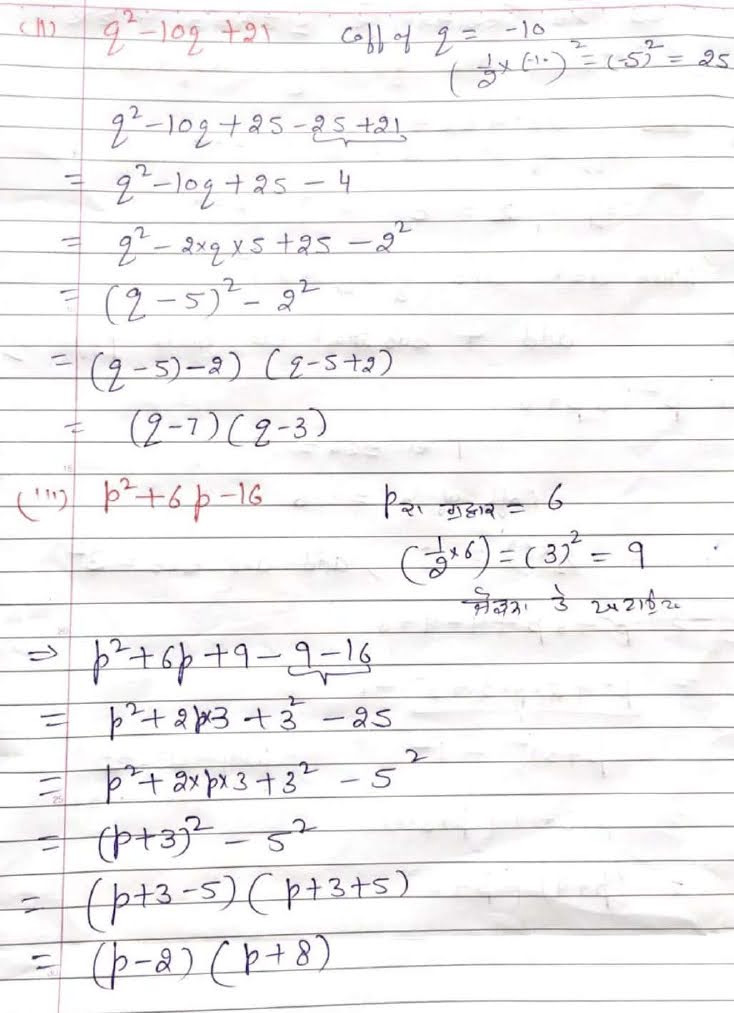 (ii) q² - 10q + 21 Coff of q = -10
(1/2 × (-10))² = (-5)² = 25
q² - 10q + 25 - 25 + 21
= q² - 10q + 25 - 4
= q² - 2×q×5 + 25 - 2²
= (q - 5)² - 2²
= (q - 5) - 2) (q - 5 + 2)
= (q - 7) (q - 3)
(iii) p² + 6p - 16 p = 6
(1/2 × 6) = (3)² = 9
⇒ p² + 6p + 9 - 9 - 16
= p² + 2p×3 + 3² - 25
= p² + 2×p×3 + 3² - 5²
= (p + 3)² - 5²
= (p + 3 - 5) (p + 3 + 5)
= (p - 2) (p + 8)